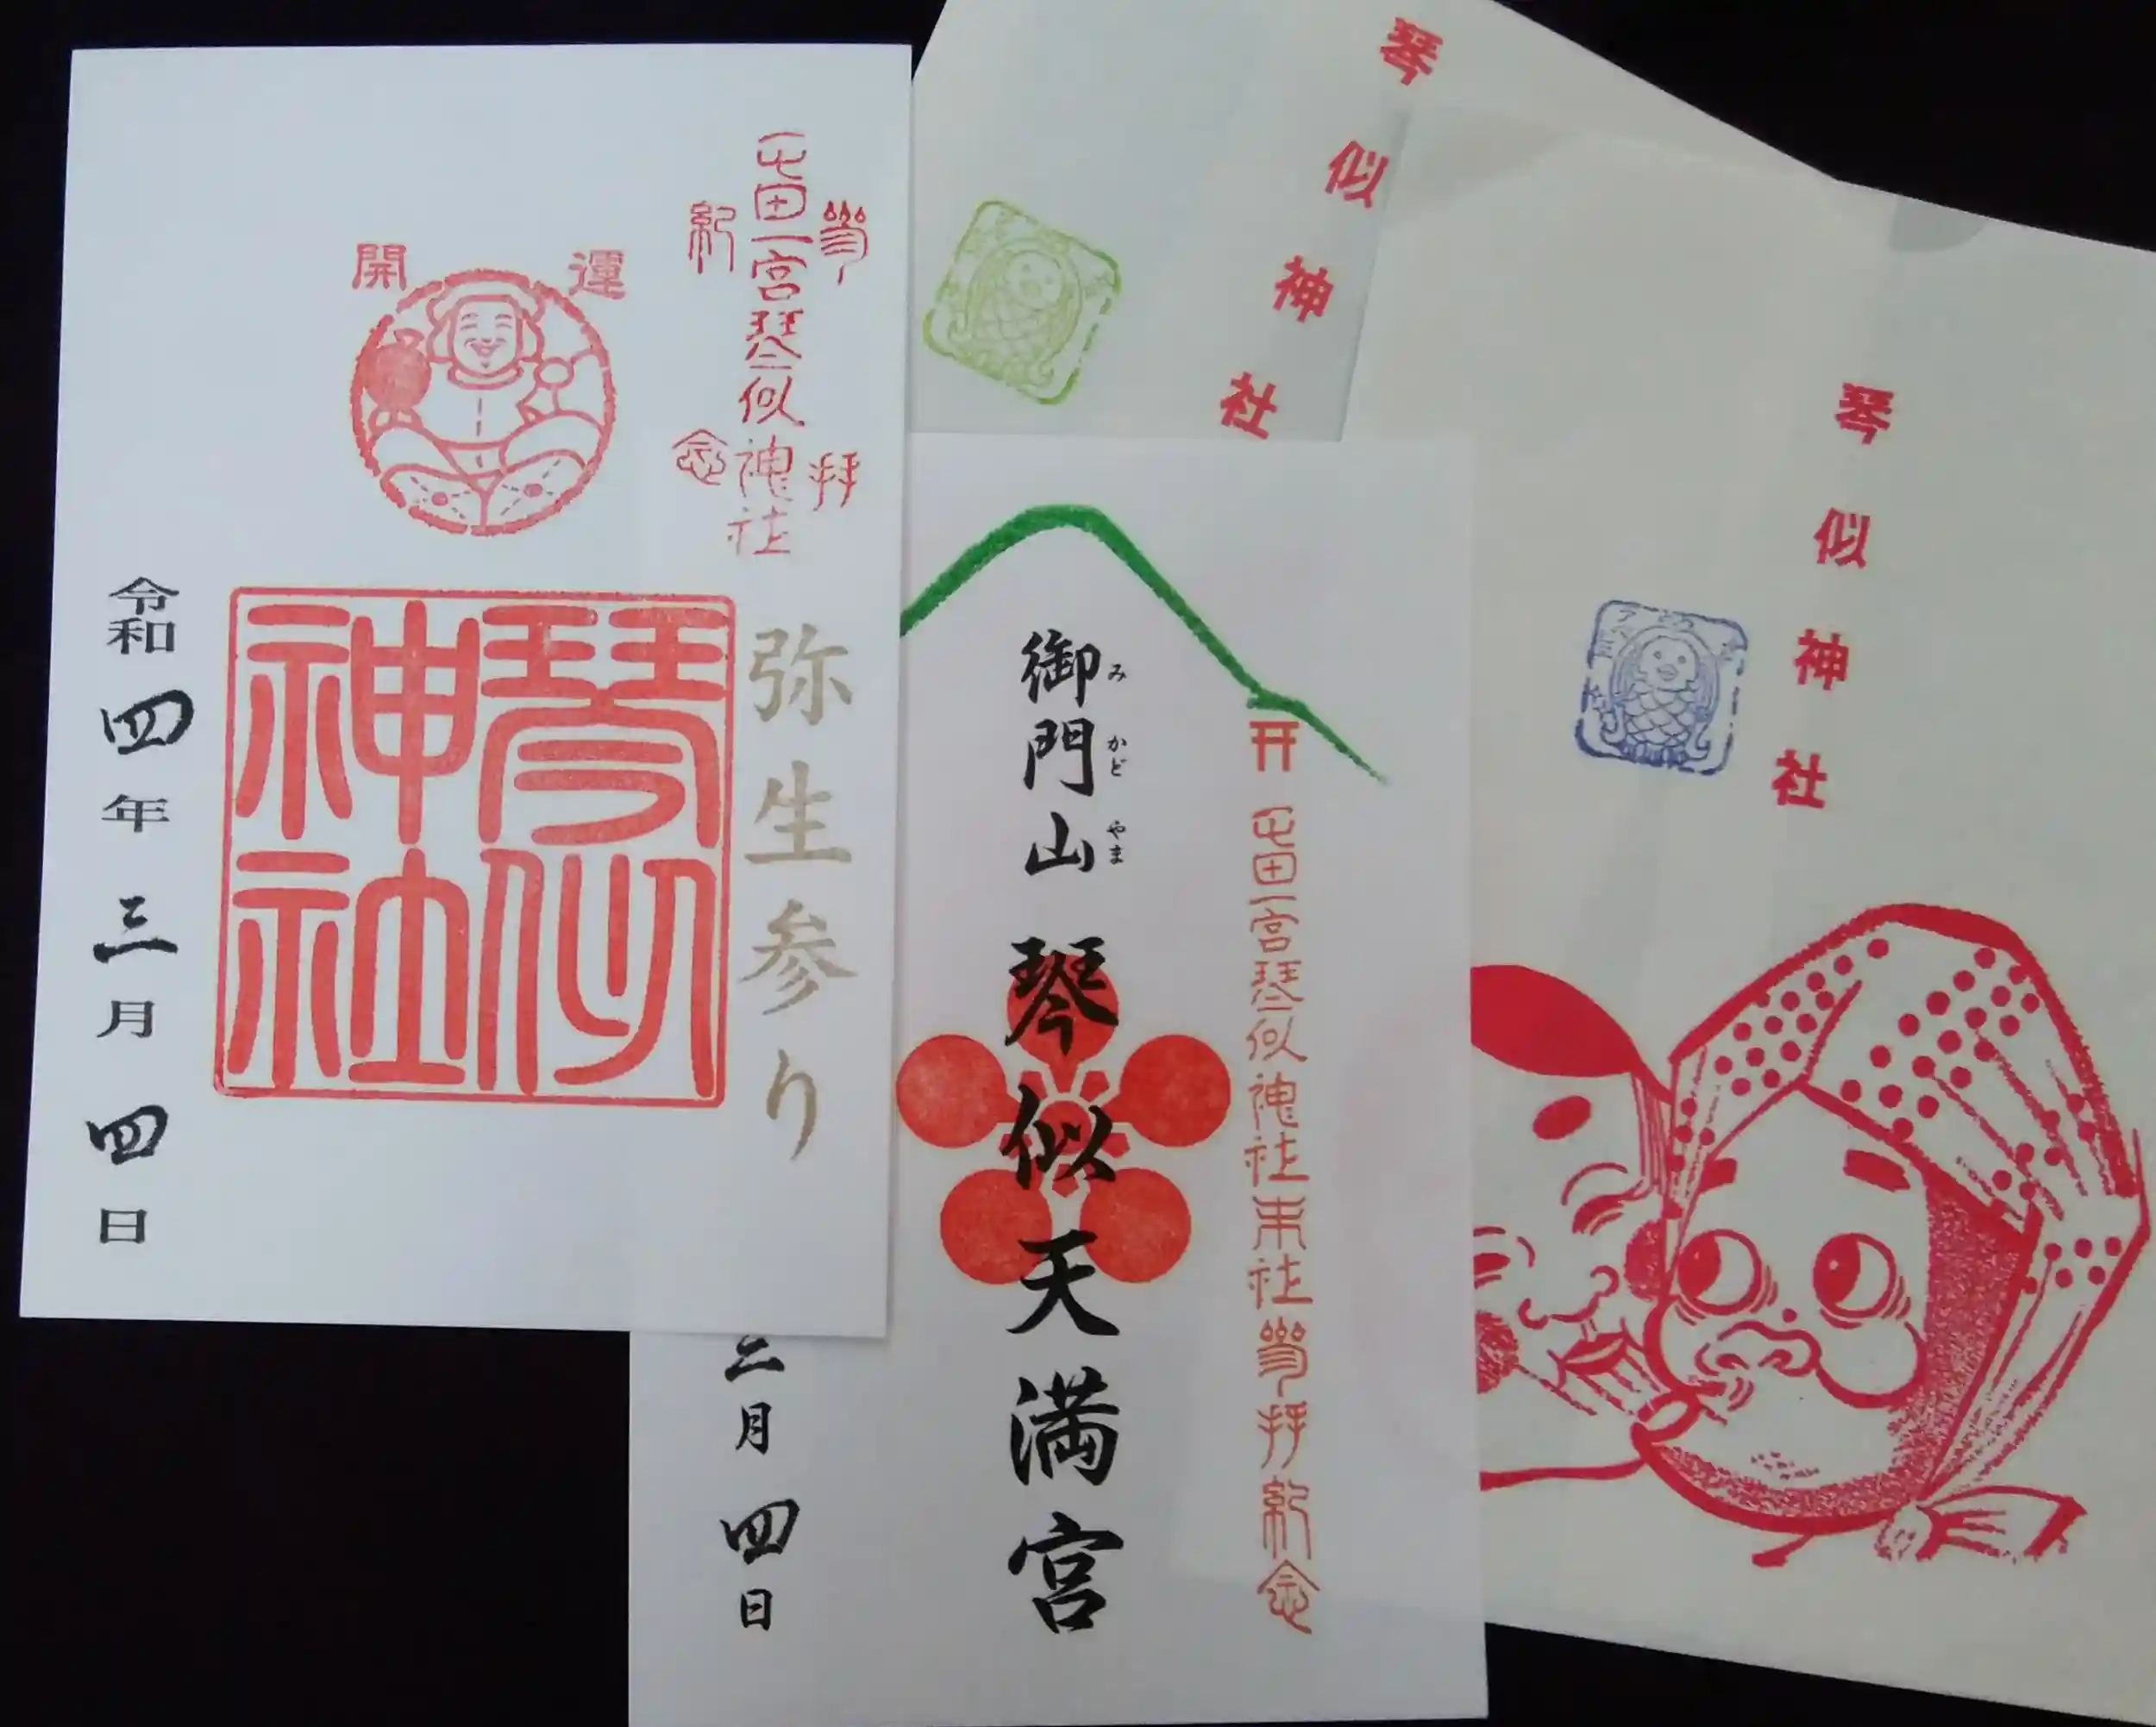 開運
屯田一宮琴似神社
参拝
紀念
弥生参り
琴似神社
令和四年三月四日
琴似神社
御門山 琴似天満宮
みかどやま
屯田一宮琴似神社末社参拝紀念
三月四日
琴似神社